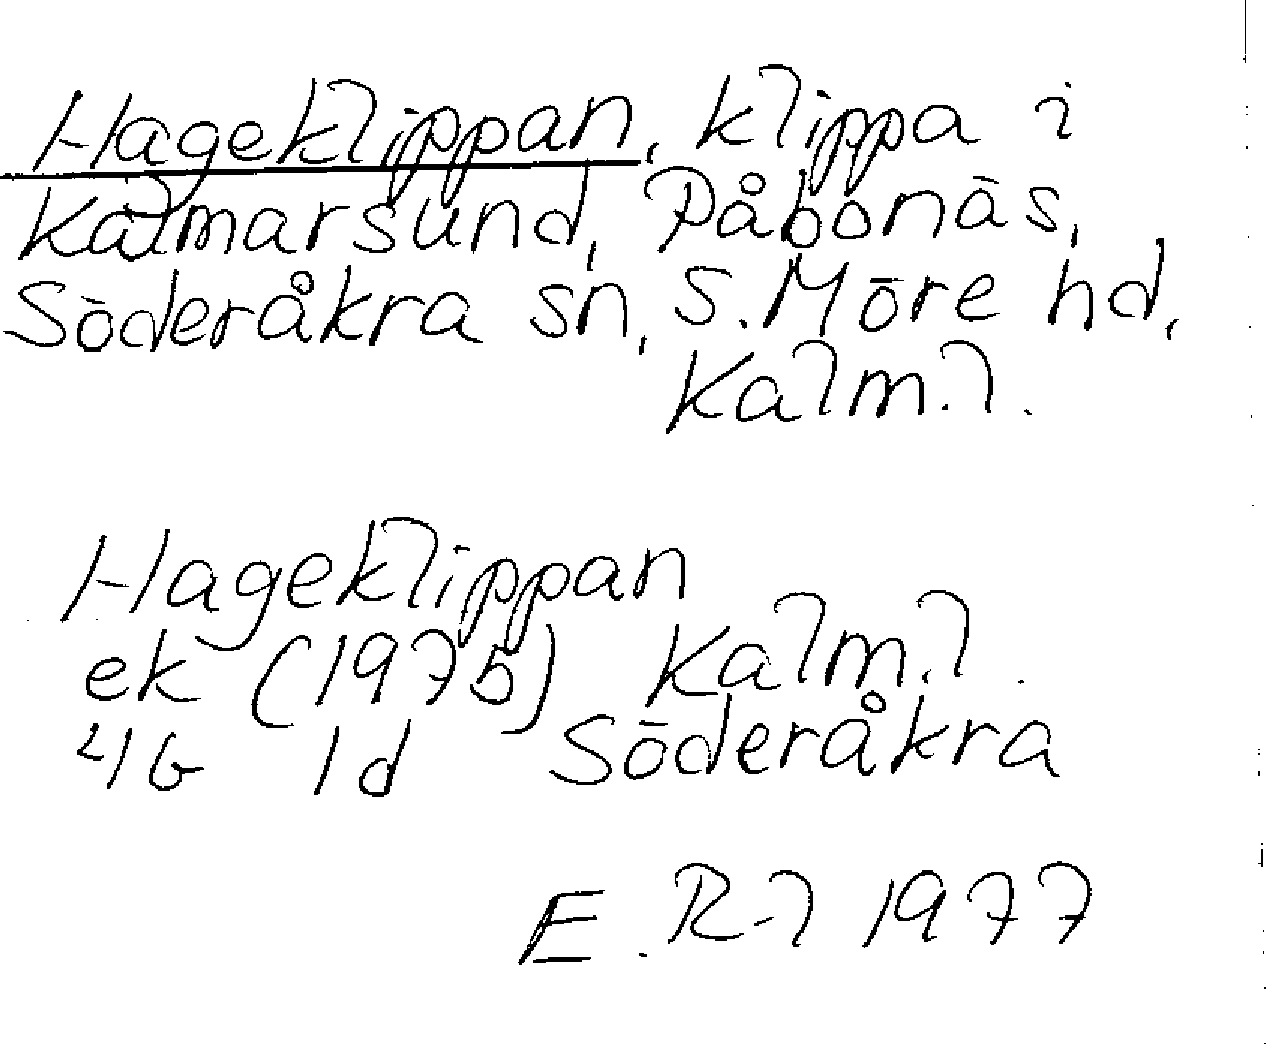 Hageklippan, klippa i
Kalmarsund, Påbonäs,
Söderåkra sn, S. Möre hd,
Kalm. l.
Hageklippan
ek (1975) Kalm. l.
4G 1d Söderåkra
E. R-l 1977